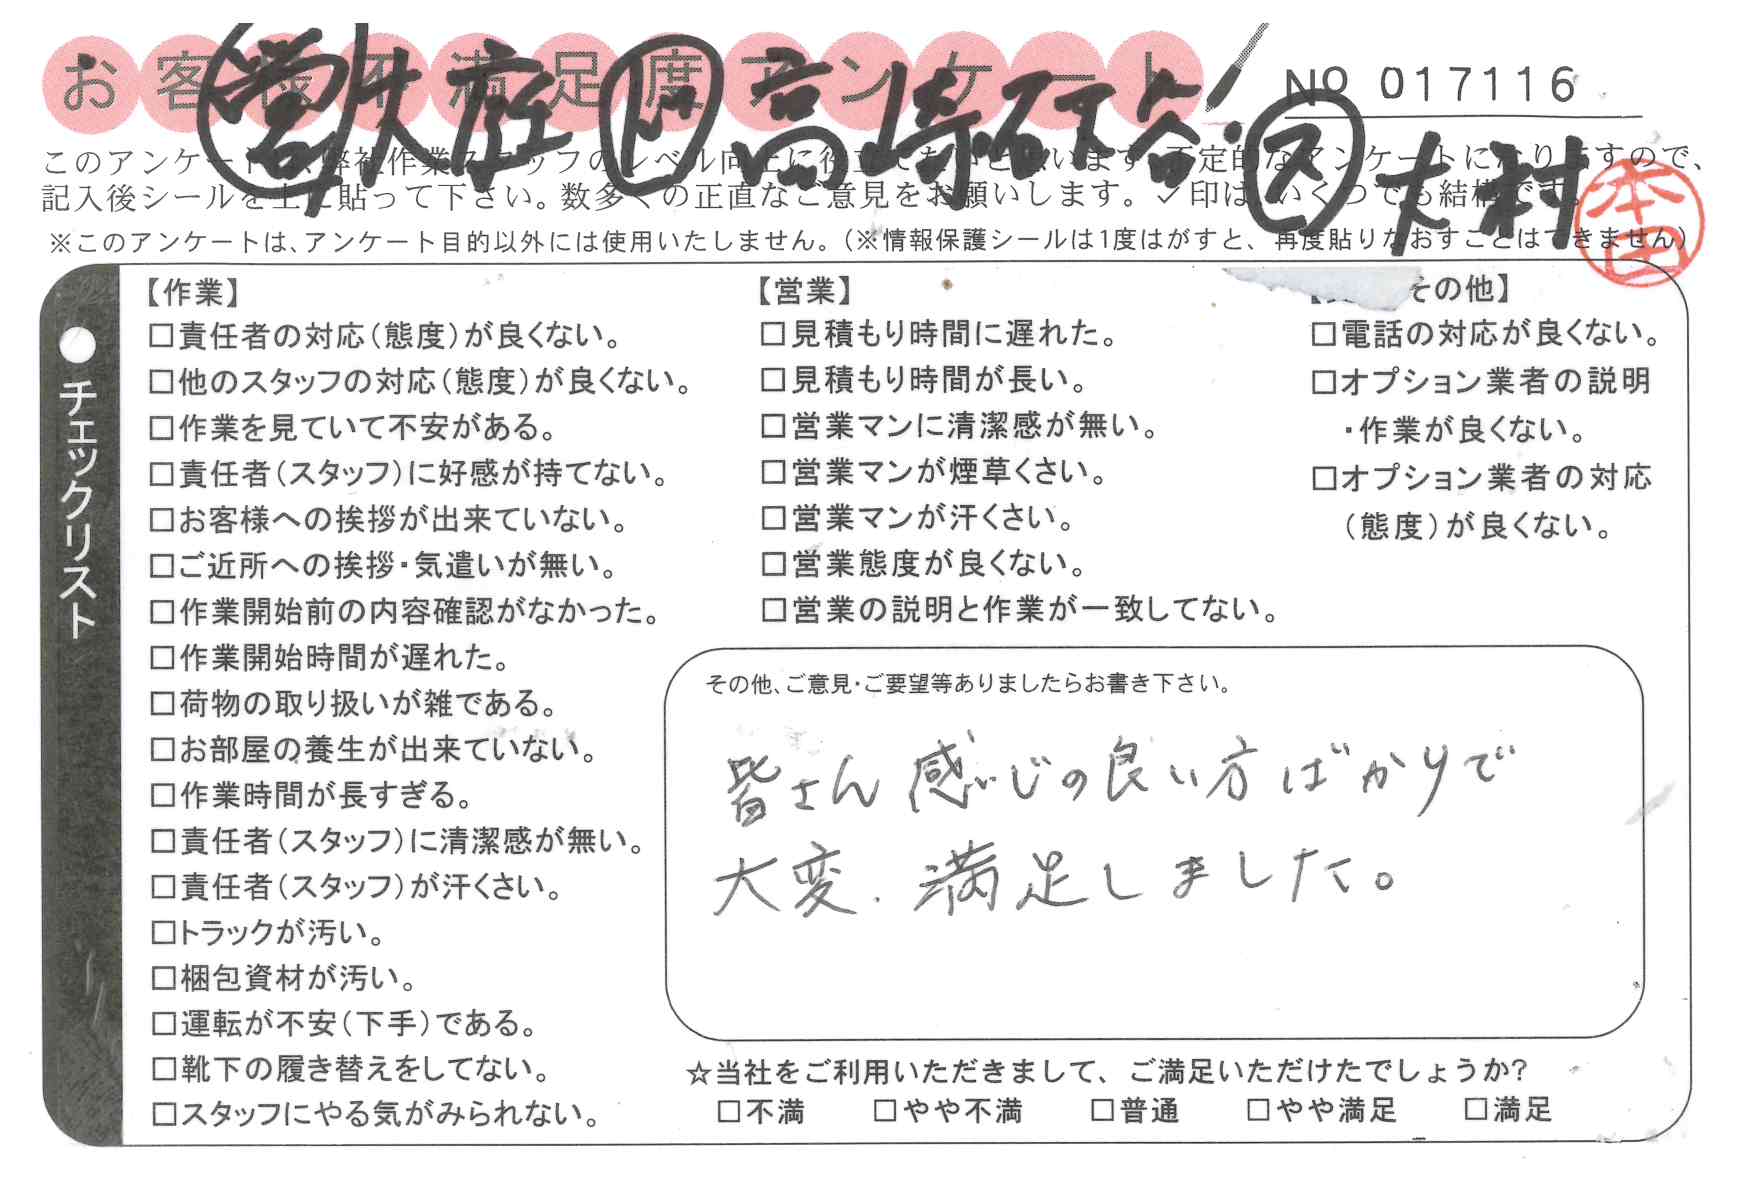 お客様不満足度アンケート
営 大庭 ド 高崎 ス 大村
NO 017116
このアンケートは、弊社作業スタッフのレベル向上に役立てたいと思います。不定的なアンケートになりますので、
記入後シールを上に貼って下さい。数多くの正直なご意見をお願いします。✓印は、いくつでも結構です。
本田
※このアンケートは、アンケート目的以外には使用いたしません。(※情報保護シールは1度はがすと、再度貼りなおすことはできません)
チェックリスト
【作業】
□責任者の対応(態度)が良くない。
□他のスタッフの対応(態度)が良くない。
□作業を見ていて不安がある。
□責任者(スタッフ)に好感が持てない。
□お客様への挨拶が出来ていない。
□ご近所への挨拶・気遣いが無い。
□作業開始前の内容確認がなかった。
□作業開始時間が遅れた。
□荷物の取り扱いが雑である。
□お部屋の養生が出来ていない。
□作業時間が長すぎる。
□責任者(スタッフ)に清潔感が無い。
□責任者(スタッフ)が汗くさい。
□トラックが汚い。
□梱包資材が汚い。
□運転が不安(下手)である。
□靴下の履き替えをしてない。
□スタッフにやる気がみられない。
【営業】
□見積もり時間に遅れた。
□見積もり時間が長い。
□営業マンに清潔感が無い。
□営業マンが煙草くさい。
□営業マンが汗くさい。
□営業態度が良くない。
□営業の説明と作業が一致してない。
その他】
□電話の対応が良くない。
□オプション業者の説明
・作業が良くない。
□オプション業者の対応
(態度)が良くない。
その他、ご意見・ご要望等ありましたらお書き下さい。
皆さん感いじの良い方ばかりで
大変、満足しました。
☆当社をご利用いただきまして、ご満足いただけたでしょうか?
□不満 □やや不満 □普通 □やや満足 □満足